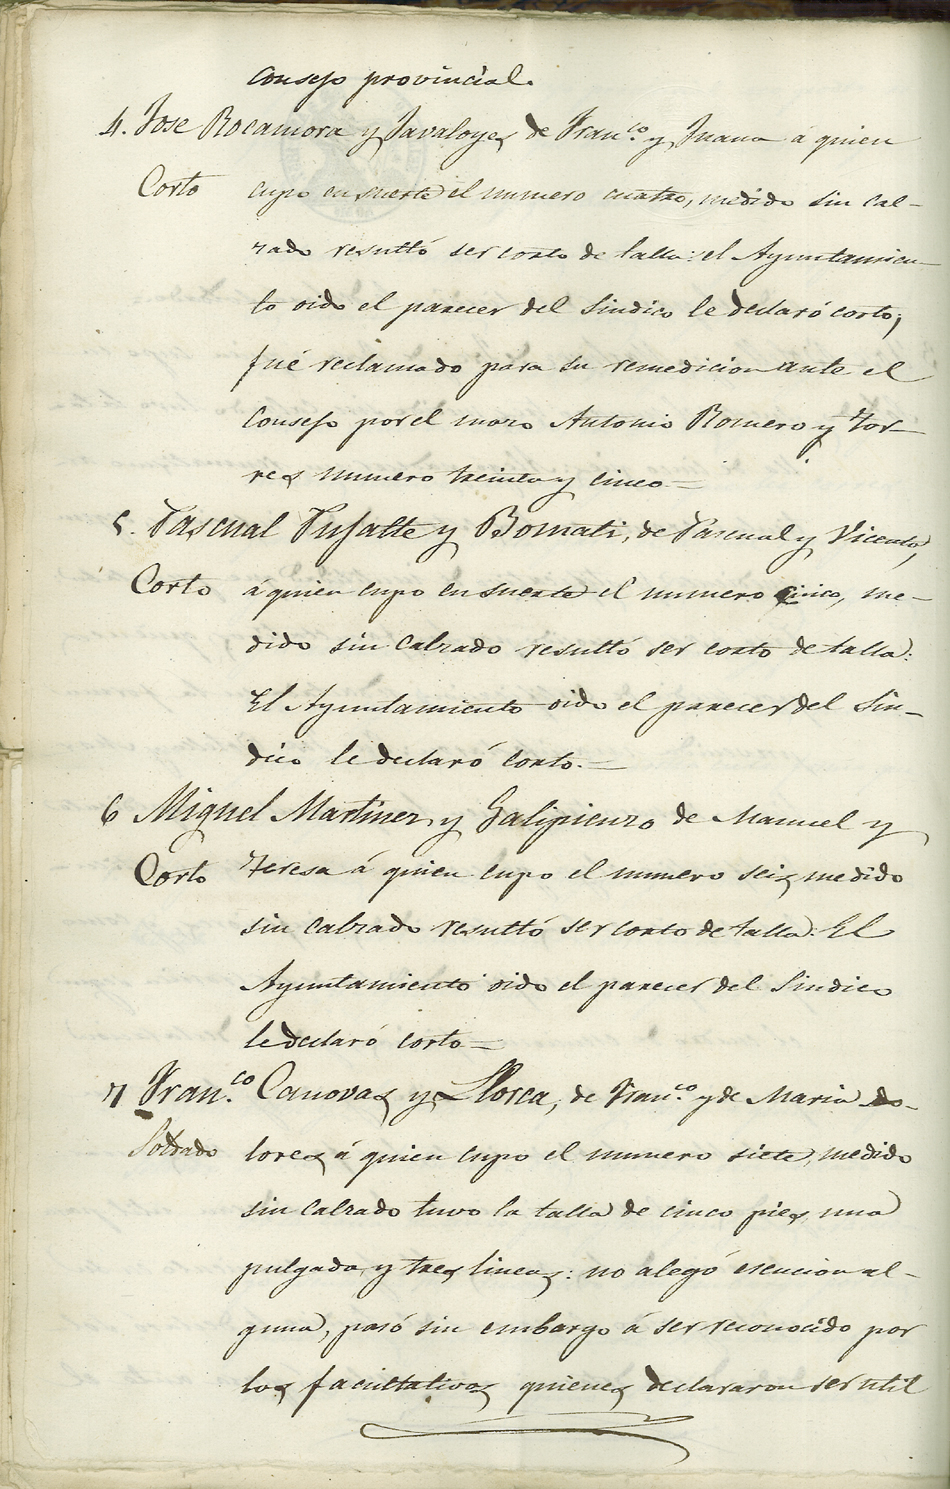 Consejo provincial.
4. Jose Rocamora y Javaloyes de Fran.co y Juana á quien
Corto cupo en suerte el numero cuatro, medido sin cal-
zado resultó ser corto de talla: el Ayuntamien-
to oido el parecer del Sindico le declaró corto;
fué reclamado para su remedicion ante el
Consejo por el mozo Antonio Romero y Tor-
res numero treinta y cinco =
5. Pascual Pujalte y Bornati, de Pascual y Vicenta,
Corto á quien cupo en suerte el numero cinco, me-
dido sin calzado resultó ser corto de talla:
El Ayuntamiento oido el parecer del Sin-
dico le declaró corto.=
6 Miguel Martinez y Galipienzo de Manuel y
Corto Teresa á quien cupo el numero seis, medido
sin calzado resultó ser corto de talla: El
Ayuntamiento oido el parecer del Sindico
le declaró corto =
7 Fran.co Canovas y Llorca, de Fran.co y de Maria do-
Soldado lores á quien cupo el numero siete, medido
sin calzado tuvo la talla de cinco pies, una
pulgada, y tres lineas: no alegó esencion al-
guna, pasó sin embargo á ser reconocido por
los facultativos quienes declararon ser util